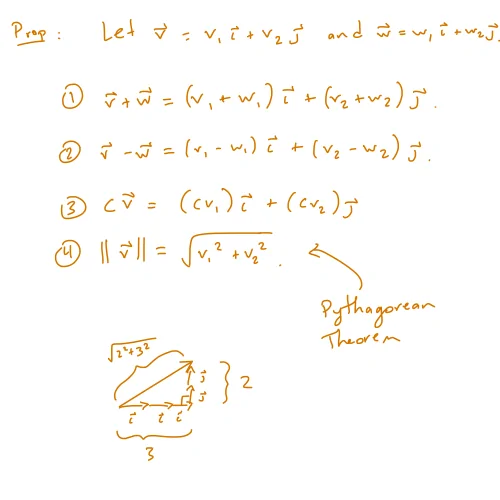 Prop : Let v⃗ = v₁ i⃗ + v₂ j⃗ and w⃗ = w₁ i⃗ + w₂ j⃗.
① v⃗ + w⃗ = (v₁ + w₁) i⃗ + (v₂ + w₂) j⃗.
② v⃗ - w⃗ = (v₁ - w₁) i⃗ + (v₂ - w₂) j⃗.
③ c v⃗ = (cv₁) i⃗ + (cv₂) j⃗
④ ‖v⃗‖ = √(v₁² + v₂²).
Pythagorean
Theorem
√(2²+3²)
j⃗
j⃗
2
i⃗ i⃗ i⃗
3